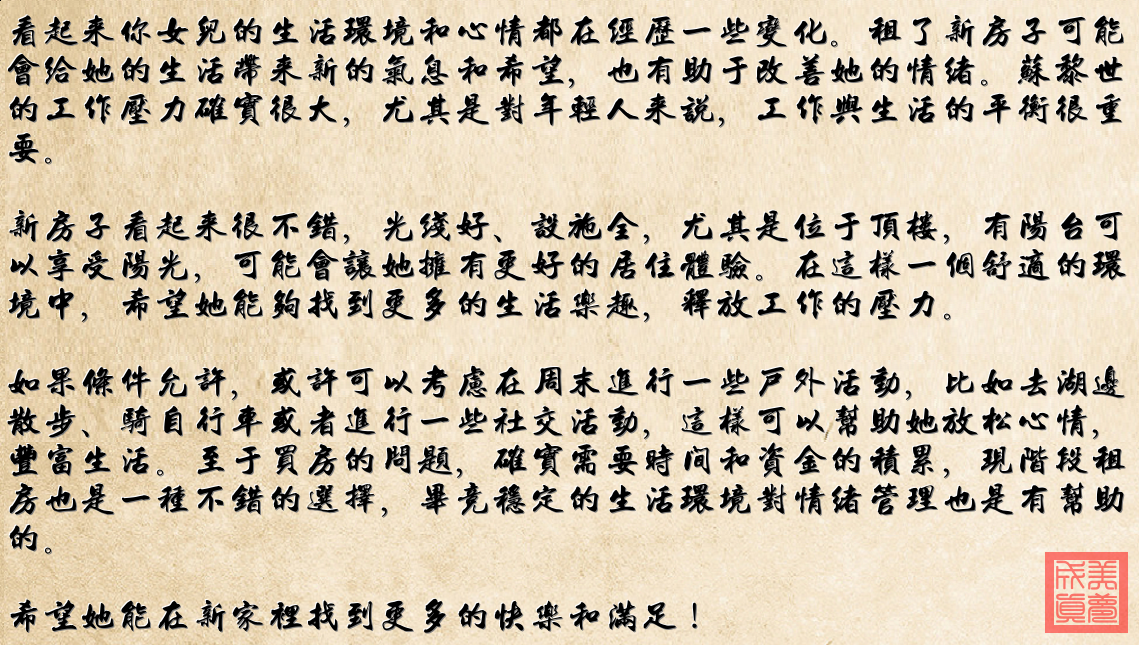 看起来你女兒的生活環境和心情都在經歷一些變化。租了新房子可能
會給她的生活帶来新的氣息和希望，也有助于改善她的情緒。蘇黎世
的工作壓力確實很大，尤其是對年輕人来說，工作與生活的平衡很重
要。
新房子看起来很不錯，光綫好、設施全，尤其是位于頂楼，有陽台可
以享受陽光，可能會讓她擁有更好的居住體驗。在這樣一個舒適的環
境中，希望她能夠找到更多的生活樂趣，釋放工作的壓力。
如果條件允許，或許可以考慮在周末進行一些戶外活動，比如去湖邊
散步、騎自行車或者進行一些社交活動，這樣可以幫助她放松心情，
豐富生活。至于買房的問題，確實需要時间和資金的積累，現階段租
房也是一種不錯的選擇，畢竟穩定的生活環境對情緒管理也是有幫助
的。
希望她能在新家裡找到更多的快樂和滿足！
美夢
成真